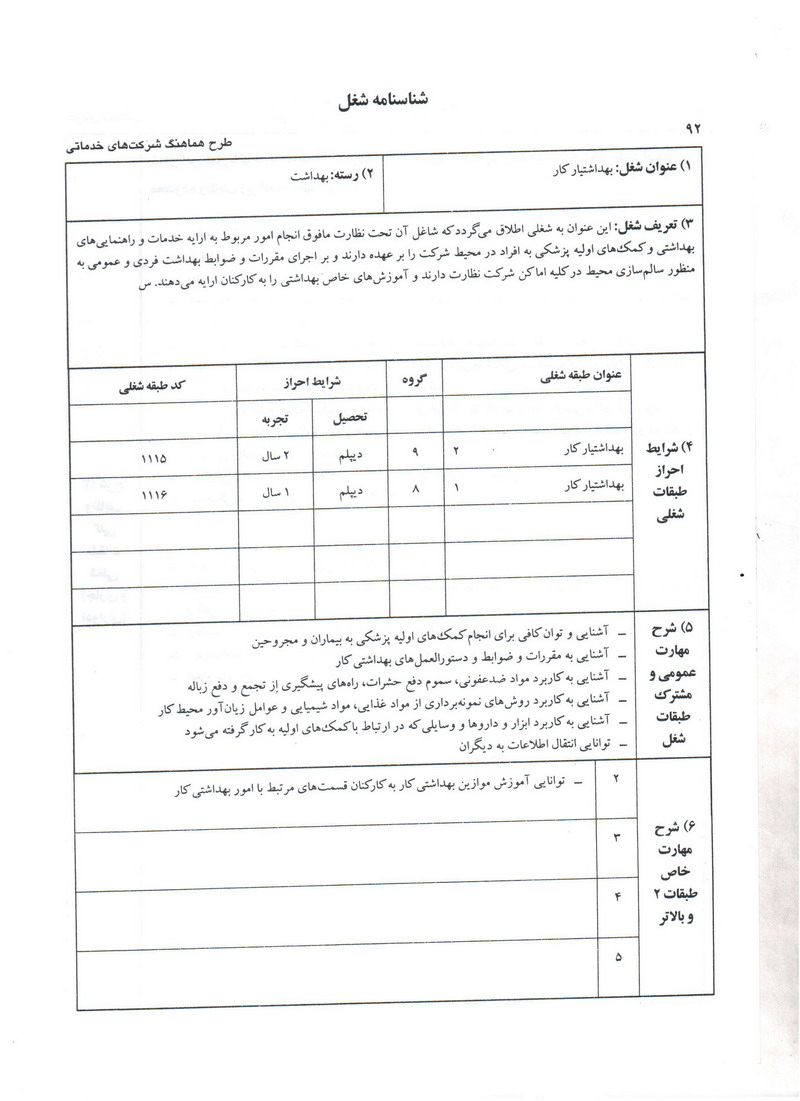 شناسنامه شغل
۹۲
طرح هماهنگ شرکت‌های خدماتی
۱) عنوان شغل: بهداشتیار کار
۲) رسته: بهداشت
۳) تعریف شغل: این عنوان به شغلی اطلاق می‌گردد که شاغل آن تحت نظارت مافوق انجام امور مربوط به ارایه خدمات و راهنمایی‌های
بهداشتی و کمک‌های اولیه پزشکی به افراد در محیط شرکت را بر عهده دارند و بر اجرای مقررات و ضوابط بهداشت فردی و عمومی به
منظور سالم‌سازی محیط در کلیه اماکن شرکت نظارت دارند و آموزش‌های خاص بهداشتی را به کارکنان ارایه می‌دهند. س
۴) شرایط
احراز
طبقات
شغلی
عنوان طبقه شغلی
گروه
شرایط احراز
کد طبقه شغلی
تحصیل
تجربه
بهداشتیار کار ۲ ۹ دیپلم ۲ سال ۱۱۱۵
بهداشتیار کار ۱ ۸ دیپلم ۱ سال ۱۱۱۶
۵) شرح
مهارت
عمومی و
مشترک
طبقات
شغل
– آشنایی و توان کافی برای انجام کمک‌های اولیه پزشکی به بیماران و مجروحین
– آشنایی به مقررات و ضوابط و دستورالعمل‌های بهداشتی کار
– آشنایی به کاربرد مواد ضدعفونی، سموم دفع حشرات، راه‌های پیشگیری از تجمع و دفع زباله
– آشنایی به کاربرد روش‌های نمونه‌برداری از مواد غذایی، مواد شیمیایی و عوامل زیان‌آور محیط کار
– آشنایی به کاربرد ابزار و داروها و وسایلی که در ارتباط با کمک‌های اولیه به کار گرفته می‌شود
– توانایی انتقال اطلاعات به دیگران
۶) شرح
مهارت
خاص
طبقات ۲
و بالاتر
۲
– توانایی آموزش موازین بهداشتی کار به کارکنان قسمت‌های مرتبط با امور بهداشتی کار
۳
۴
۵